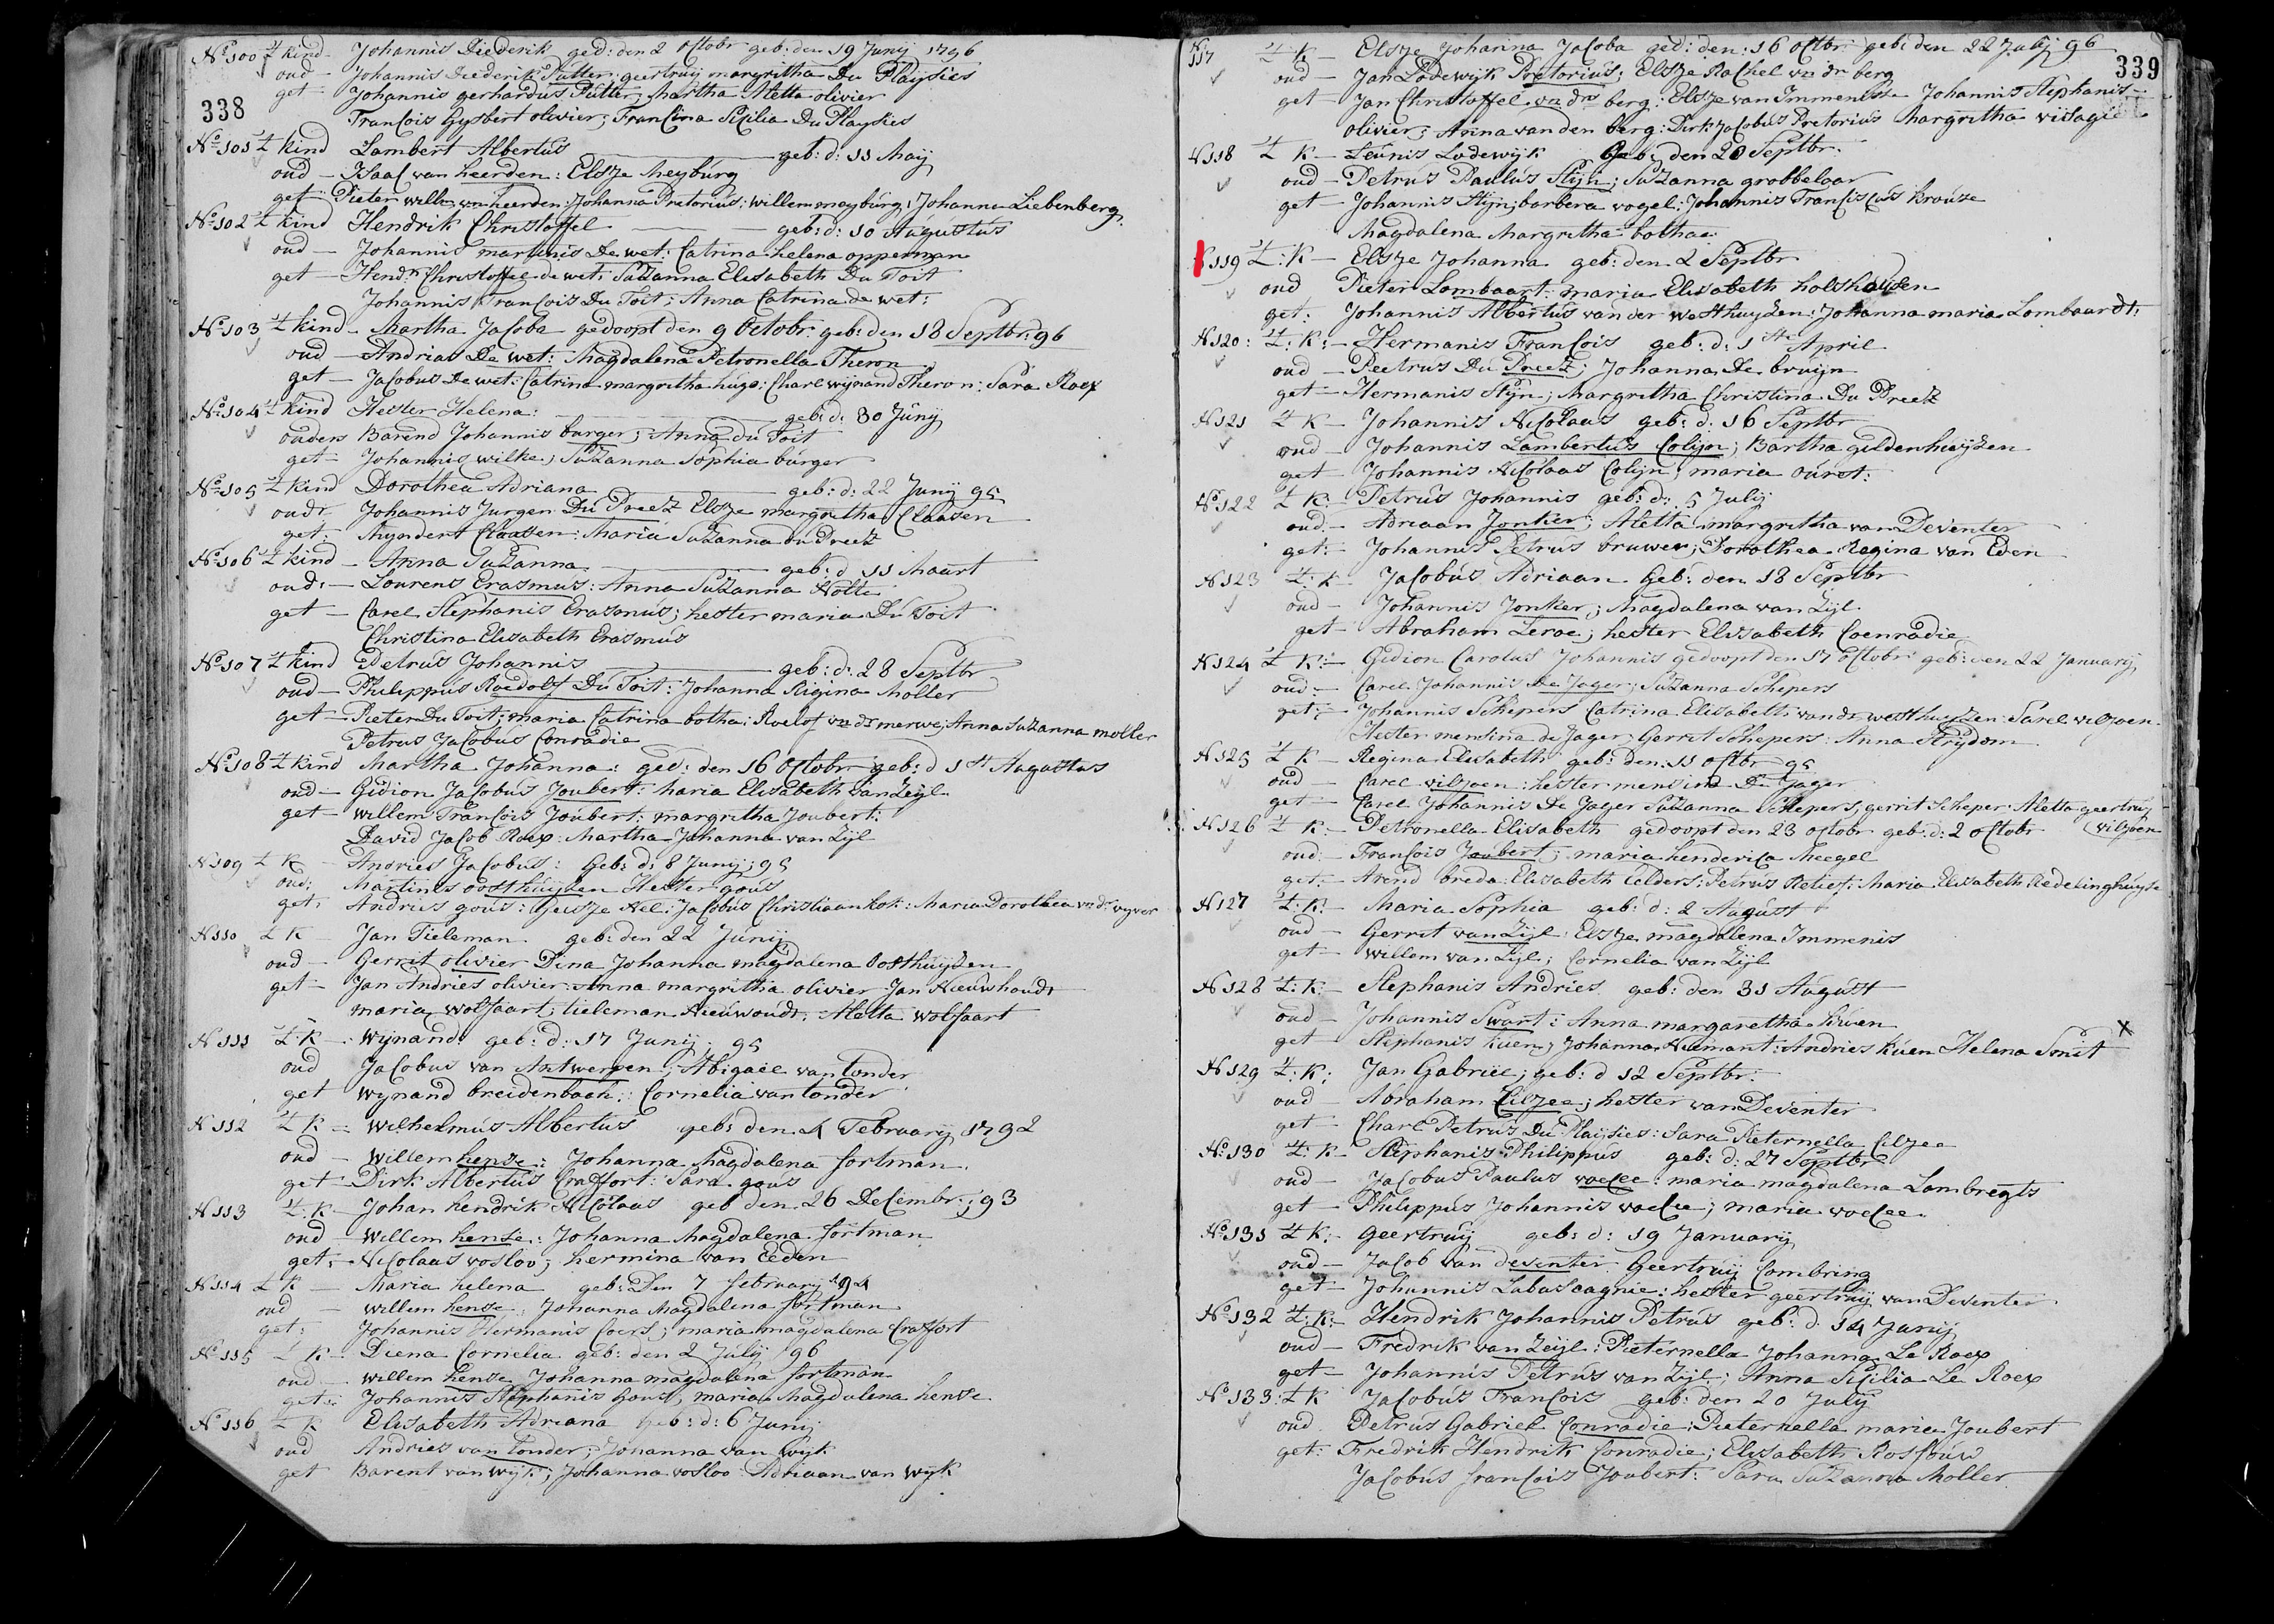 338
No 100 't kind - Johannis Diederik ged: den 2 Octobr geb: den 19 Junij 1796
oud - Johannis Diederik Putter; geertruij margritha Du Plaijsies
get - Johannis gerhardus Putter; Martha Aletta olivier
Francois Gysbert olivier; Francina Sicilia Du Playsies
No 101 't kind Lambert Albertus geb: d: 11 Maij
oud - Isaac van heerden: Elsje Meyburg
get - Pieter willem van heerden: Johanna Pretorius: willem mayburg: Johanna Liebenberg
No 102 't kind Hendrik Christoffel geb: d: 10 Augustus
oud - Johannis martinis De wet: Catrina helena opperman
get - Hendk Christoffel de wet: Suzanna Elisabeth Du Toit
Johannis Francois Du Toit; Anna Catrina de wet:
No 103 't kind - Martha Jacoba gedoopt den 9 Octobr: geb: den 18 Septbr: 96
oud - Andrias De wet: Magdalena Petronella Theron
get - Jacobus De wet: Catrina margritha hugo: Charl wijnand Theron: Sara Roex
No 104 't kind Hester Helena: geb: d: 30 Junij
ouders Barend Johannis burger; Anna du Toit
get - Johannis wilke; Suzanna Sophia burger
No 105 't kind Dorothea Adriana geb: d: 22 Junij 95
oudr Johannis Jurgen Du Preez Elsje margritha Claasen
get: Myndert Claassen: Maria Suzanna du Preez
No 106 't kind - Anna Suzanna geb: d 11 Maart
oud: - Lourens Erasmus: Anna Suzanna Nolte
get - Carel Stephanis Erasmus; hester maria Du Toit
Christina Elisabeth Erasmus
No 107 't kind Petrus Johannis geb: d: 28 Septbr
oud - Philippus Roedolf Du Toit: Johanna Rigina Moller
get - Pieter Du Toit; maria Catrina botha: Roelof vn dr merwe; Anna Suzanna moller
Petrus Jacobus Conradie
No 108 't kind Martha Johanna: ged: den 16 Octobr geb: d 1st Augustus
oud - Gidion Jacobus Joubert: maria Elisabeth van Zeijl
get - willem Francois Joubert: margritha Joubert:
David Jacob Roex: Martha Johanna van Zijl
N 109 't K - Andries Jacobus: Geb: d: 8 Junij; 95
oud: Martinis oosthuijzen Hester gous
get, Andries gous: Geusje Nel: Jacobus Christiaan kok: Maria Dorothea vn dr wyver
N 110 't K - Jan Tieleman geb: den 22 Junij
oud - Gerrit olivier Dina Johanna magdalena Oosthuijsen
get - Jan Andries olivier: Anna margritha olivier Jan Nieuwhoudt
maria wolfaart; tieleman Nieuwoudt. Aletta wolfaart
N 111 't K - Wijnand: geb: d: 17 Junij: 95
oud Jacobus van Antwerpen; Abigael van tonder
get wynand breidenbach: Cornelia van tonder
N 112 't K - Wilhelmus Albertus geb: den 4 February 1792
oud - Willem hense: Johanna Magdalena fortman
get - Dirk Albertus Craffort: Sara gous
N 113 't K - Johan hendrik Nicolaas geb den 26 Decembr: 93
oud - Willem hense: Johanna Magdalena fortman
get: - Nicolaas vosloo; hermina van Eeden
N 114 't K - Maria helena geb: Den 7 february 94
oud - willem hense; Johanna Magdalena fortman
get: Johannis Hermanis Coers; maria magdalena Craffort
No 115 't K - Diena Cornelia geb: den 2 July 96
oud - willem hense Johanna magdalena fortman
get: Johannis Stephanis Gous; maria Magdalena hense
No 116 't K Elisabeth Adriana Geb: d: 6 Junij
oud Andries van tonder; Johanna van wyk
get Barent van wijk; Johanna vosloo: Adriaan van wyk
339
N 117 't K - Elsje Johanna Jacoba ged: den: 16 Octbr: geb: den 22 July 96
oud - Jan Lodewijk Pretorius; Elsje Rachel vn dr berg
get - Jan Christoffel vn dr berg: Elsje van Immenis Johannis Stephanis
olivier; Anna van den berg: Dirk Jacobus Pretorius Margritha visagie
N 118 't K - Teunis Lodewyk Geb: den 20 Septbr:
oud - Petrus Paulus Stijn; Suzanna grobbelaar
get - Johannis Stijn; barbera vogel: Johannis Franciscus Krouse
Magdalena Margritha bothaa:
119 't: K - Elsje Johanna geb: den 2 Septbr
oud Pieter Lombaart: maria Elisabeth holshausen
get: Johannis Albertus van der westhuyzen: Johanna maria Lombaardt:
N 120: 't: K: - Hermanis Francois geb: d: 1ste April
oud - Peetrus Du Preez; Johanna De bruijn
get - Hermanis Stijn; Margritha Christina Du Preez
N 121 't K - Johannis Nicolaas geb: d: 16 Septbr
oud - Johannis Lambertus Colijn; Bartha guldenhuijzen
get Johannis Nicolaas Colijn; maria ourst:
No 122 't K: - Petrus Johannis geb: d: 5 July
oud: - Adriaan Jonker; Aletta margritha van Deventer
get: - Johannis Petrus bruwer; Dorothea Regina van Eden
N 123 't: K - Jacobus Adriaan Geb: den 18 Septbr
oud - Johannis Jonker; Magdalena van Zijl
get - Abraham Leroe; hester Elisabeth Coenradie
N 124 't K: - Gidion Carolus Johannis gedoopt den 17 Octobr: geb: den 22 January
oud: - Carel Johannis De Jager; Suzanna Schepers
get: - Johannis Schepers Catrina Elisabeth van dr westhuyzen: Sarel viljoen
Hester mensina de Jager; Gerrit Schepers: Anna Strydom
N 125 't K - Regina Elisabeth geb: den: 11 Octbr 95
oud - Carel viljoen: hester mensina De Jager
get - Carel Johannis De Jager Suzanna Schepers, gerrit Scheper Aletta geertruy viljoen
N 126 't K: - Petronella Elisabeth gedoopt den 23 octobr geb: d: 2 octobr
oud: - Francois Joubert; maria henderica Meegel
get: - Arend breda: Elisabeth Eelders: Petrus Retief: Maria Elisabeth Redelinghuyse
N 127 't: K: - Maria Sophia geb: d: 2 August
oud - Gerrit van Zijl Elsje magdalena Immenis
get - Willem van Zijl; Cornelia van Zijl
N 128 't: K: - Stephanis Andries geb: den 31 August
oud - Johannis Swart: Anna margaretha kuen
get Stephanis kuen; Johanna Niemant: Andries kuen Helena Smit x
N 129 't: K: Jan Gabriel; geb: d 12 Septbr:
oud - Abraham Cilzee; hester van Deventer
get - Charl Petrus Du Playsies: Sara Pieternella Cilzee
No 130 't: K - Stephanis Philippus geb: d: 27 Septbr:
oud - Jacobus Paulus voelee: maria magdalena Lambregts
get - Philippus Johannis voelee; maria voelee
No 131 't K: - Geertruy geb: d: 19 January
oud - Jacob van deventer Geertruij Combring
get - Johannis Labuscagnie: hester geertruij van Deventer
No 132 't: K: - Hendrik Johannis Petrus geb: d: 14 Junij
oud - Fredrik van Zeijl: Pieternella Johanna Le Roex
get - Johannis Petrus van Zijl; Anna Sicilia Le Roex
No 133: 't K Jacobus Francois geb: den 20 July
oud Petrus Gabriel Conradie; Pieternella maria Joubert
get: Fredrik Hendrik Conradie; Elisabeth Roscouw
Jacobus francois Joubert: Sara Suzanna Moller